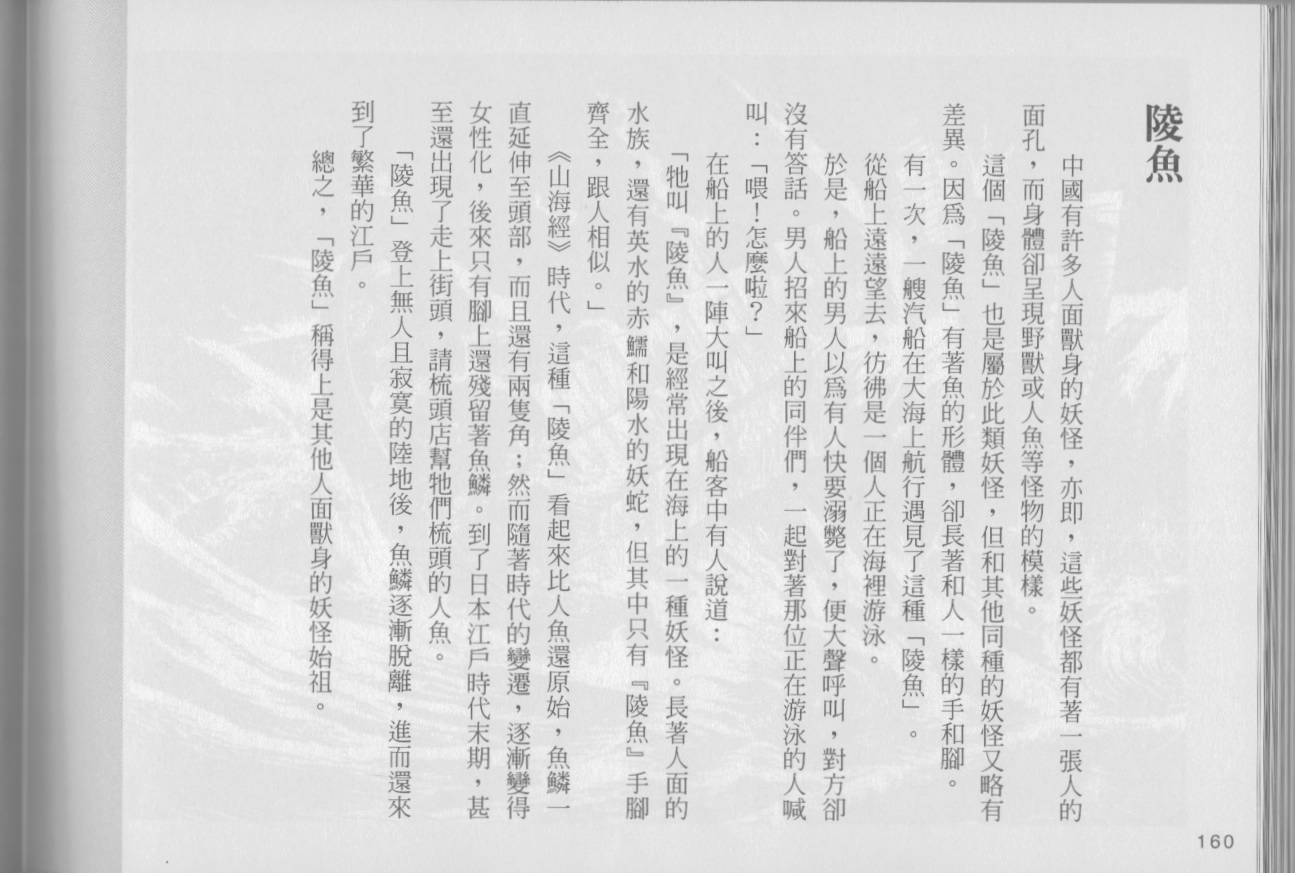 陵魚
中國有許多人面獸身的妖怪，亦即，這些妖怪都有著一張人的
面孔，而身體卻呈現野獸或人魚等怪物的模樣。
這個「陵魚」也是屬於此類妖怪，但和其他同種的妖怪又略有
差異。因爲「陵魚」有著魚的形體，卻長著和人一樣的手和腳。
有一次，一艘汽船在大海上航行遇見了這種「陵魚」。
從船上遠遠望去，彷彿是一個人正在海裡游泳。
於是，船上的男人以爲有人快要溺斃了，便大聲呼叫，對方卻
沒有答話。男人招來船上的同伴們，一起對著那位正在游泳的人喊
叫：「喂！怎麼啦？」
在船上的人一陣大叫之後，船客中有人說道：
「牠叫『陵魚』，是經常出現在海上的一種妖怪。長著人面的
水族，還有英水的赤鱬和陽水的妖蛇，但其中只有『陵魚』手腳
齊全，跟人相似。」
《山海經》時代，這種「陵魚」看起來比人魚還原始，魚鱗一
直延伸至頭部，而且還有兩隻角；然而隨著時代的變遷，逐漸變得
女性化，後來只有腳上還殘留著魚鱗。到了日本江戶時代末期，甚
至還出現了走上街頭，請梳頭店幫牠們梳頭的人魚。
「陵魚」登上無人且寂寞的陸地後，魚鱗逐漸脫離，進而還來
到了繁華的江戶。
總之，「陵魚」稱得上是其他人面獸身的妖怪始祖。
160